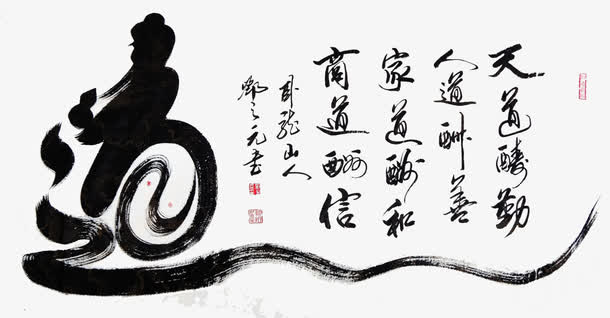 天道酬勤
人道酬善
家道酬和
商道酬信
卧龍山人
之元书
道